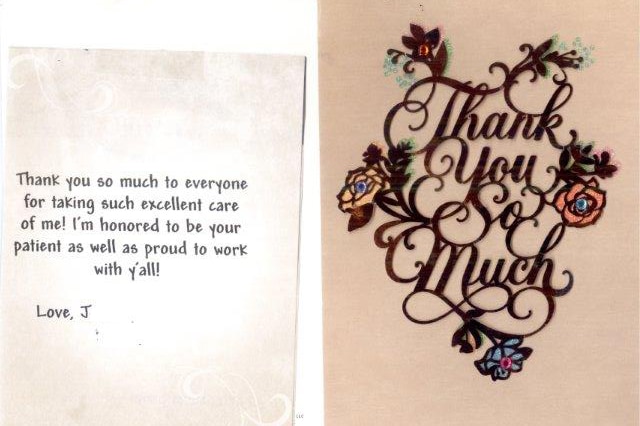 Thank you so much to everyone
for taking such excellent care
of me! I'm honored to be your
patient as well as proud to work
with y'all!
Love, J
Thank
You
So
Much